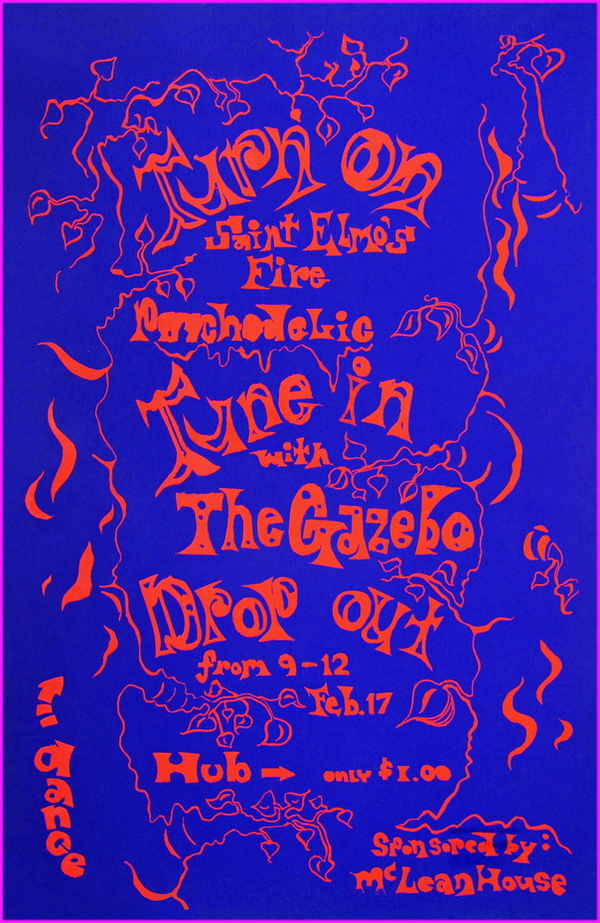 Turn on
Saint Elmo's
Fire
Psychodelic
Tune in
with
The Gazebo
Drop out
from 9-12
Feb. 17
Hub → only $1.00
dance
Sponsored by:
McLean House